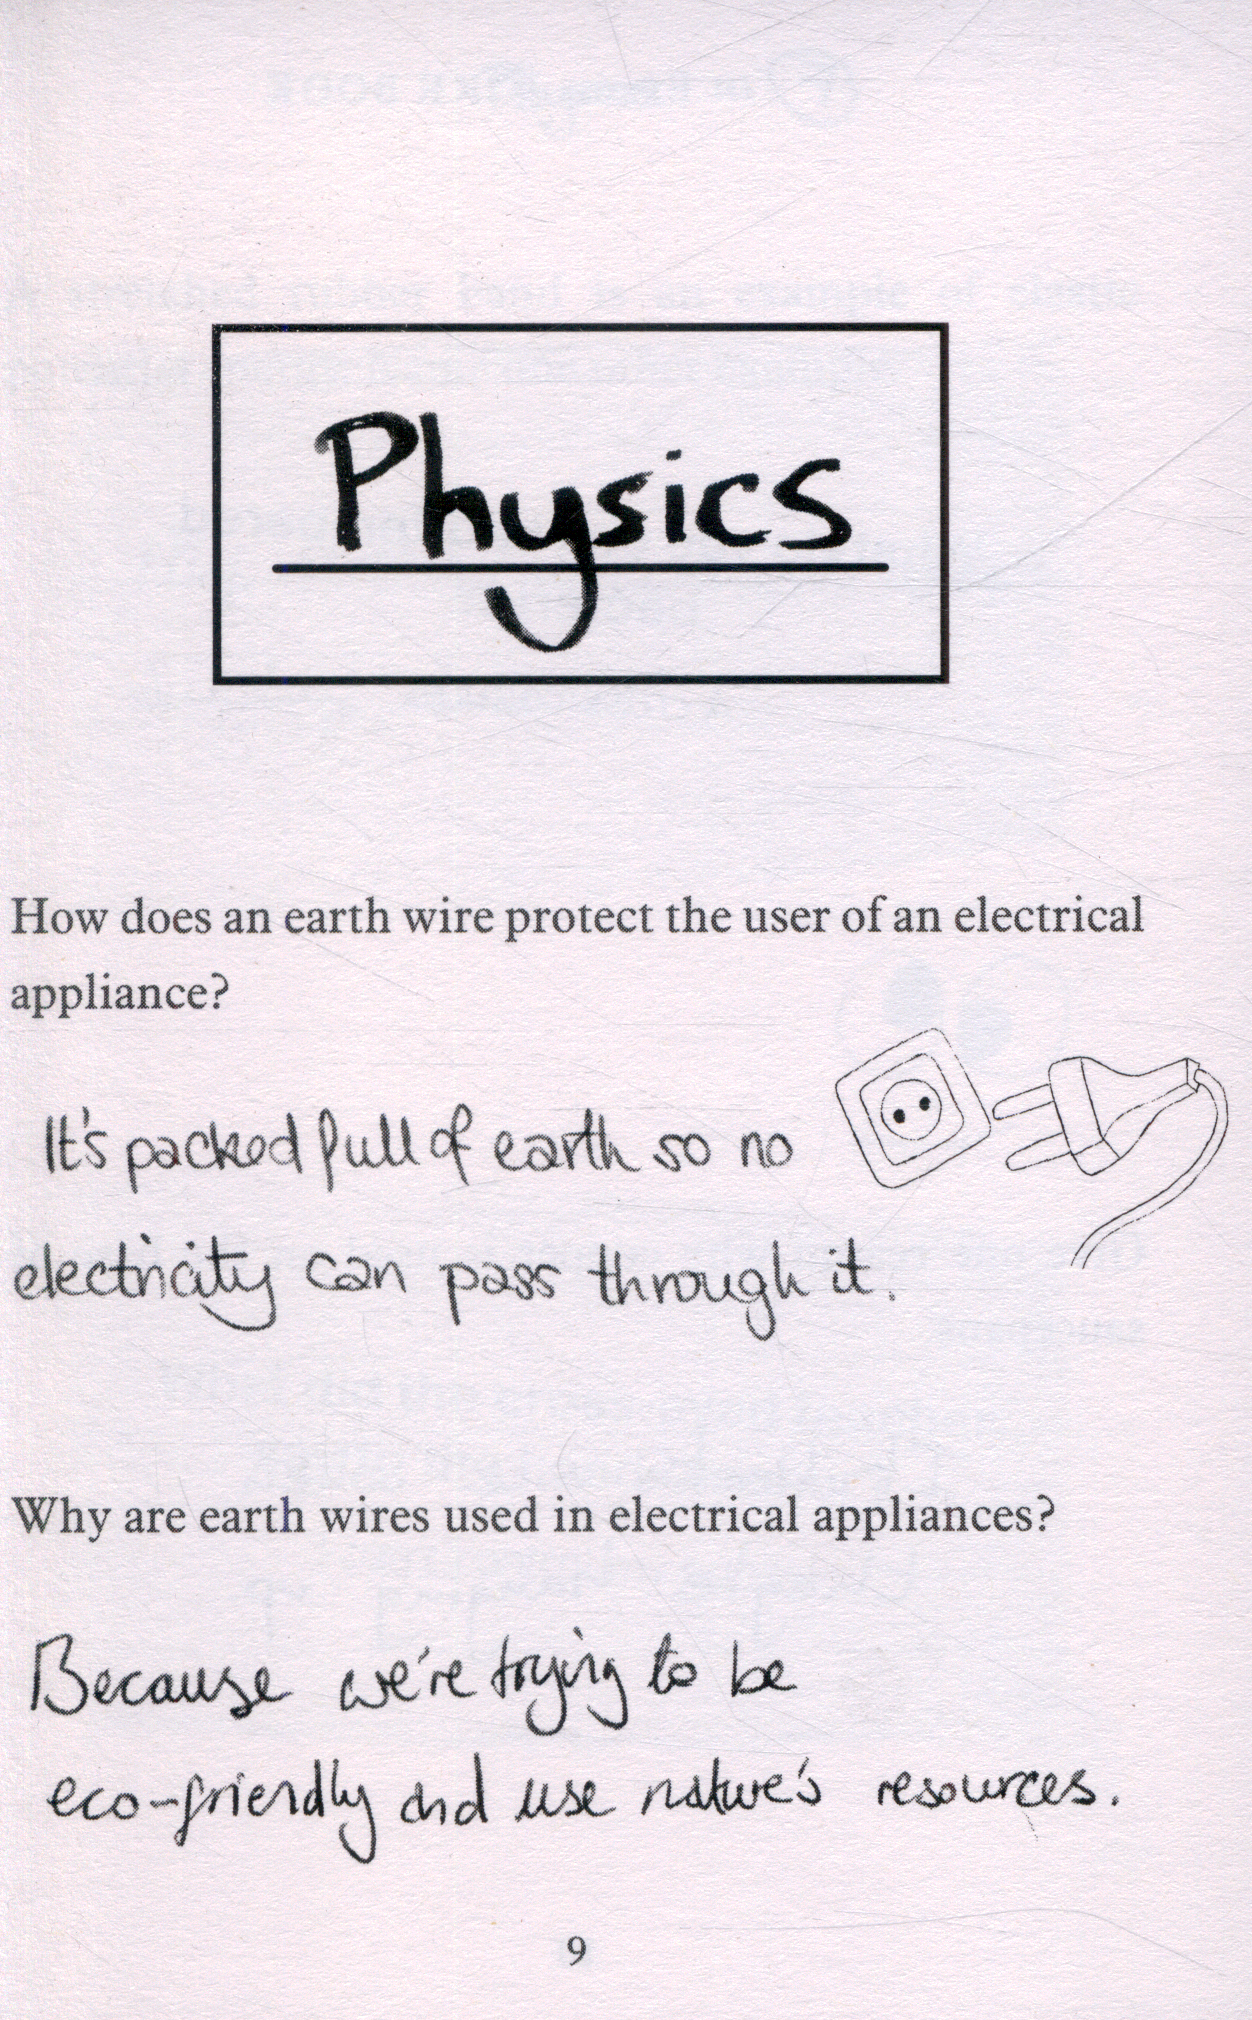 Physics
How does an earth wire protect the user of an electrical
appliance?
It's packed full of earth so no
electricity can pass through it.
Why are earth wires used in electrical appliances?
Because we're trying to be
eco-friendly and use nature's resources.
9